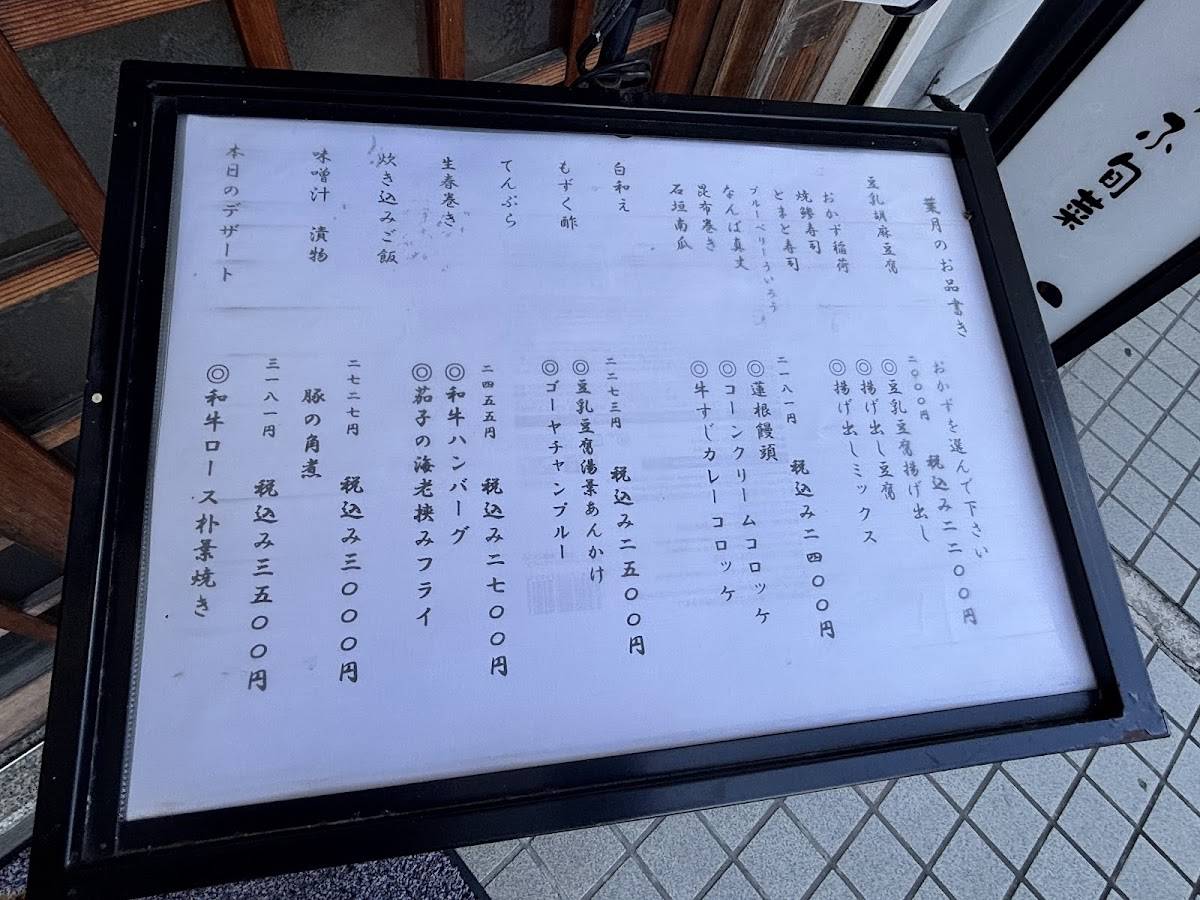 葉月のお品書き
豆乳胡麻豆腐
おかず稲荷
焼鯵寿司
とまと寿司
ブルーベリーういろう
なんば真丈
昆布巻き
石垣南瓜
白和え
もずく酢
てんぷら
生春巻き
炊き込みご飯
味噌汁 漬物
本日のデザート
おかずを選んで下さい
二〇〇〇円 税込み二二〇〇円
◎豆乳豆腐揚げ出し
◎揚げ出し豆腐
◎揚げ出しミックス
二一八一円 税込み二四〇〇円
◎蓮根饅頭
◎コーンクリームコロッケ
◎牛すじカレーコロッケ
二二七三円 税込み二五〇〇円
◎豆乳豆腐湯葉あんかけ
◎ゴーヤチャンプルー
二四五五円 税込み二七〇〇円
◎和牛ハンバーグ
◎茄子の海老挟みフライ
二七二七円 税込み三〇〇〇円
豚の角煮
三一八一円 税込み三五〇〇円
◎和牛ロース朴葉焼き
旬菜